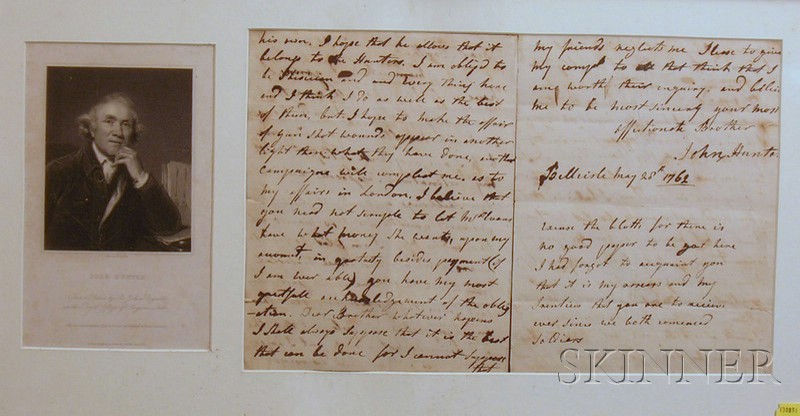 JOHN HUNTER.
his own. I hope that he allows that it
belongs to the Hunters. I am oblig'd to
be Phisician and and Every thing here
and I think I do as well as the best
of them, but I hope to make the affair
of gun shot wounds appear in another
light than what they have done, another
Campaigne will compleat me. as to
my affairs in London. I believe that
you need not scruple to let Mrs
have what money she wants, upon my
account, in besides payment (if
I am ever able) you have my most
acknowledgement of the oblig
-ation. Dear Brother whatever hapens
I shall always suppose that it is the best
that can be done for I cannot suppose
that
my friends neglects me Please to give
my compts to all that think that I
am worth their enquiry. and believe
me to be most sincerly your most
affectionate Brother
John Hunte
Bellisle May 28th 1762
excuse the blotts for there is
no good paper to be got here
I had forgot to acquaint you
that it is my arrears and my
that you are to recieve
ever since we both comenced
Soldiers
SKINNER